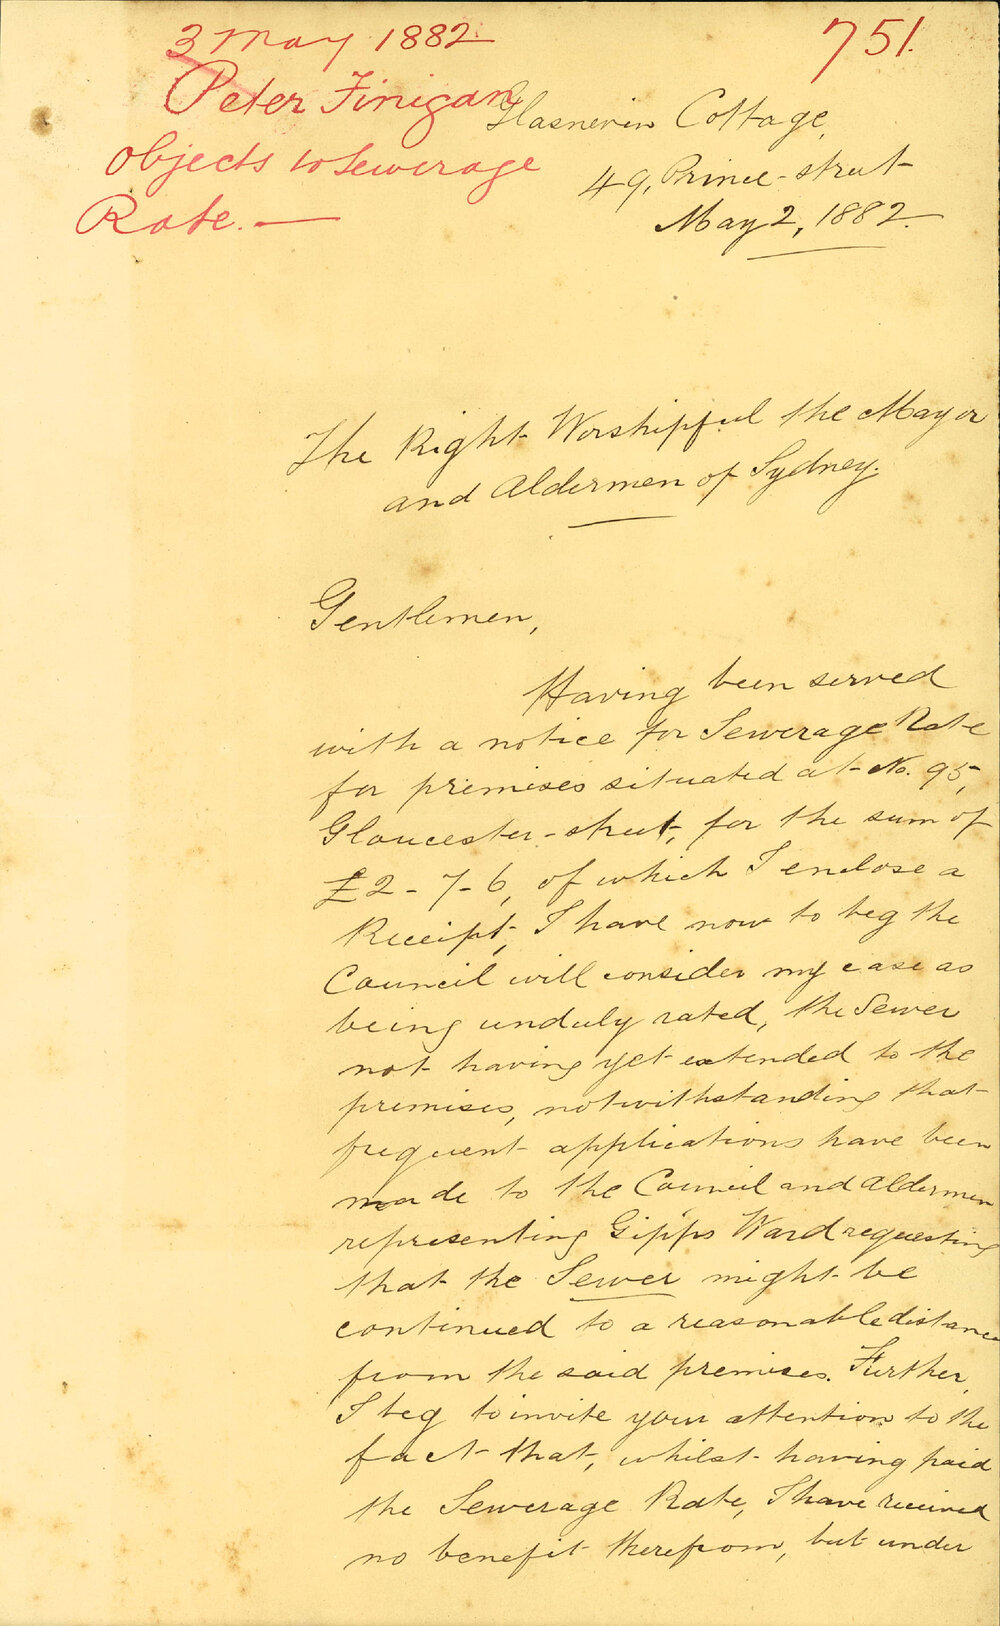 3 May 1882
751.
Peter Finigan
objects to Sewerage
Rate. —
Glasnevin Cottage,
49, Prince-street
May 2, 1882.
The Right Worshipful the Mayor
and Aldermen of Sydney.
Gentlemen,
Having been served
with a notice for Sewerage Rate
for premises situated at No. 95,
Gloucester-street, for the sum of
£2-7-6, of which I enclose a
Receipt, I have now to beg the
Council will consider my case as
being unduly rated, the Sewer
not having yet extended to the
premises, notwithstanding that
frequent applications have been
made to the Council and Aldermen
representing Gipps Ward requesting
that the Sewer might be
continued to a reasonable distance
from the said premises. Further,
I beg to invite your attention to the
fact that, whilst having paid
the Sewerage Rate, I have received
no benefit therefrom, but under